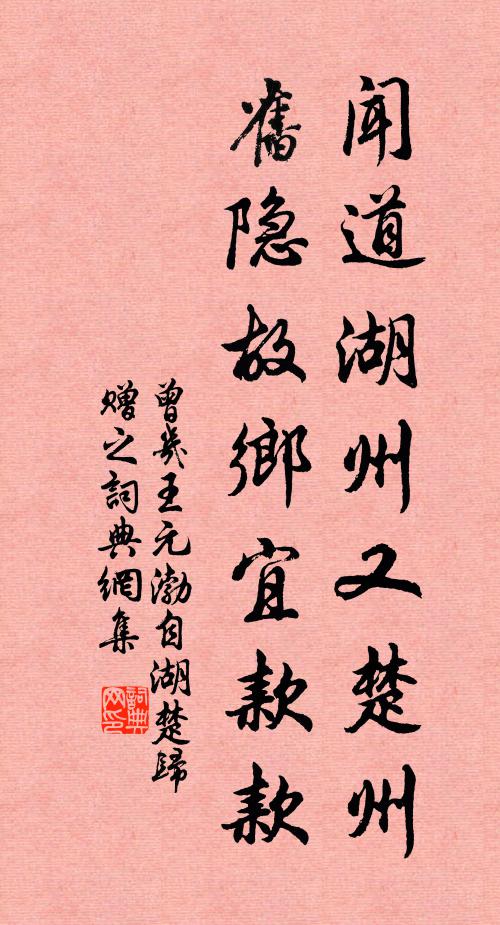 聞道湖州又楚州
舊隐故鄉宜款款
曾幾王元渤自湖楚歸
贈之詞典網集
詞典
网印